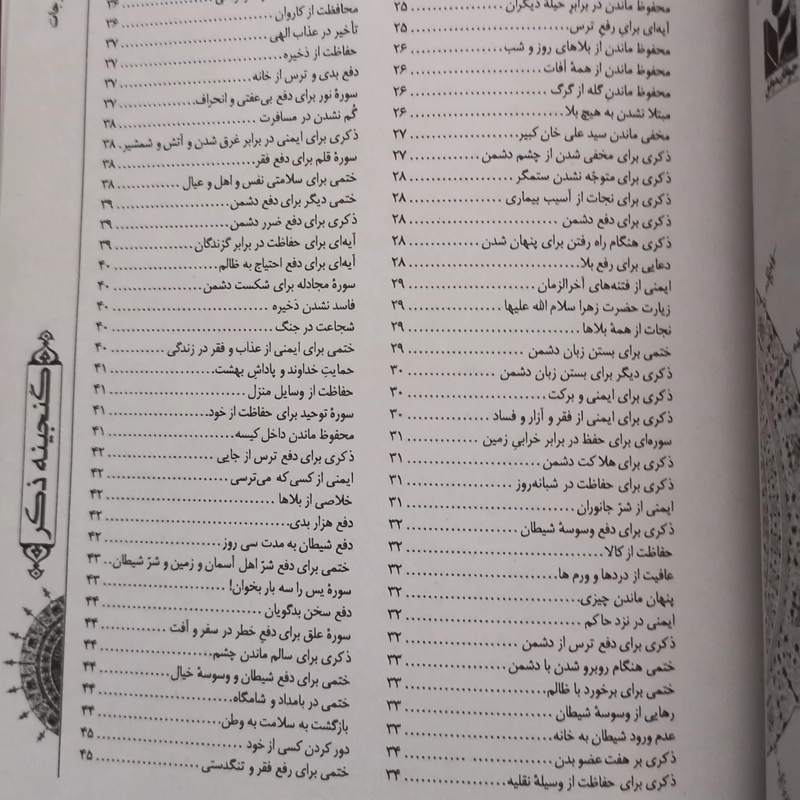 محفوظ ماندن در برابر حیلهٔ دیگران ........ ۲۵
آیه‌ای برای رفع ترس ........ ۲۵
محفوظ ماندن از بلاهای روز و شب ........ ۲۶
محفوظ ماندن از همهٔ آفات ........ ۲۶
محفوظ ماندن گله از گرگ ........ ۲۶
مبتلا نشدن به هیچ بلا ........ ۲۶
مخفی ماندن سید علی خان کبیر ........ ۲۷
ذکری برای مخفی شدن از چشم دشمن ........ ۲۷
ذکری برای متوجّه نشدن ستمگر ........ ۲۸
ذکری برای نجات از آسیب بیماری ........ ۲۸
ذکری برای دفع دشمن ........ ۲۸
ذکری هنگام راه رفتن برای پنهان شدن ........ ۲۸
دعایی برای رفع بلا ........ ۲۸
ایمنی از فتنه‌های آخرالزمان ........ ۲۹
زیارت حضرت زهرا سلام الله علیها ........ ۲۹
نجات از همهٔ بلاها ........ ۲۹
ختمی برای بستن زبان دشمن ........ ۲۹
ذکری دیگر برای بستن زبان دشمن ........ ۳۰
ذکری برای ایمنی و برکت ........ ۳۰
ذکری برای ایمنی از فقر و آزار و فساد ........ ۳۰
سوره‌ای برای حفظ در برابر خرابیِ زمین ........ ۳۱
ذکری برای هلاکت دشمن ........ ۳۱
ذکری برای حفاظت در شبانه‌روز ........ ۳۱
ایمنی از شرّ جانوران ........ ۳۱
ذکری برای دفع وسوسهٔ شیطان ........ ۳۲
حفاظت از کالا ........ ۳۲
عافیت از دردها و ورم ها ........ ۳۲
پنهان ماندن چیزی ........ ۳۲
ایمنی در نزد حاکم ........ ۳۲
ذکری برای دفع ترس از دشمن ........ ۳۲
ختمی هنگام روبرو شدن با دشمن ........ ۳۳
ختمی برای برخورد با ظالم ........ ۳۳
رهایی از وسوسهٔ شیطان ........ ۳۳
عدم ورود شیطان به خانه ........ ۳۳
ذکری بر هفت عضو بدن ........ ۳۴
ذکری برای حفاظت از وسیلهٔ نقلیه ........ ۳۴
محافظت از کاروان ........ ۳۶
تأخیر در عذاب الهی ........ ۳۷
حفاظت از ذخیره ........ ۳۷
دفع بدی و ترس از خانه ........ ۳۷
سورهٔ نور برای دفع بی‌عفتی و انحراف ........ ۳۷
گُم نشدن در مسافرت ........ ۳۸
ذکری برای ایمنی در برابر غرق شدن و آتش و شمشیر . ۳۸
سورهٔ قلم برای دفع فقر ........ ۳۸
ختمی برای سلامتی نفس و اهل و عیال ........ ۳۸
ختمی دیگر برای دفع دشمن ........ ۳۹
ذکری برای دفع ضرر دشمن ........ ۳۹
آیه‌ای برای حفاظت در برابر گزندگان ........ ۳۹
آیه‌ای برای دفع احتیاج به ظالم ........ ۴۰
سورهٔ مجادله برای شکست دشمن ........ ۴۰
فاسد نشدن ذخیره ........ ۴۰
شجاعت در جنگ ........ ۴۰
ختمی برای ایمنی از عذاب و فقر در زندگی ........ ۴۰
حمایتِ خداوند و پاداشِ بهشت ........ ۴۱
حفاظت از وسایل منزل ........ ۴۱
سورهٔ توحید برای حفاظت از خود ........ ۴۱
محفوظ ماندن داخل کیسه ........ ۴۱
ذکری برای دفع ترس از جایی ........ ۴۲
ایمنی از کسی که می‌ترسی ........ ۴۲
خلاصی از بلاها ........ ۴۲
دفع هزار بدی ........ ۴۲
دفع شیطان به مدت سی روز ........ ۴۲
ختمی برای دفع شرّ اهل آسمان و زمین و شرّ شیطان .. ۴۳
سورهٔ یس را سه بار بخوان! ........ ۴۳
دفع سخن بدگویان ........ ۴۴
سورهٔ علق برای دفعِ خطر در سفر و آفت ........ ۴۴
ذکری برای سالم ماندن چشم ........ ۴۴
ختمی برای دفع شیطان و وسوسهٔ خیال ........ ۴۴
ختمی در بامداد و شامگاه ........ ۴۴
بازگشت به سلامت به وطن ........ ۴۴
دور کردن کسی از خود ........ ۴۵
ختمی برای رفع فقر و تنگدستی ........ ۴۵
گنجینه ذکر